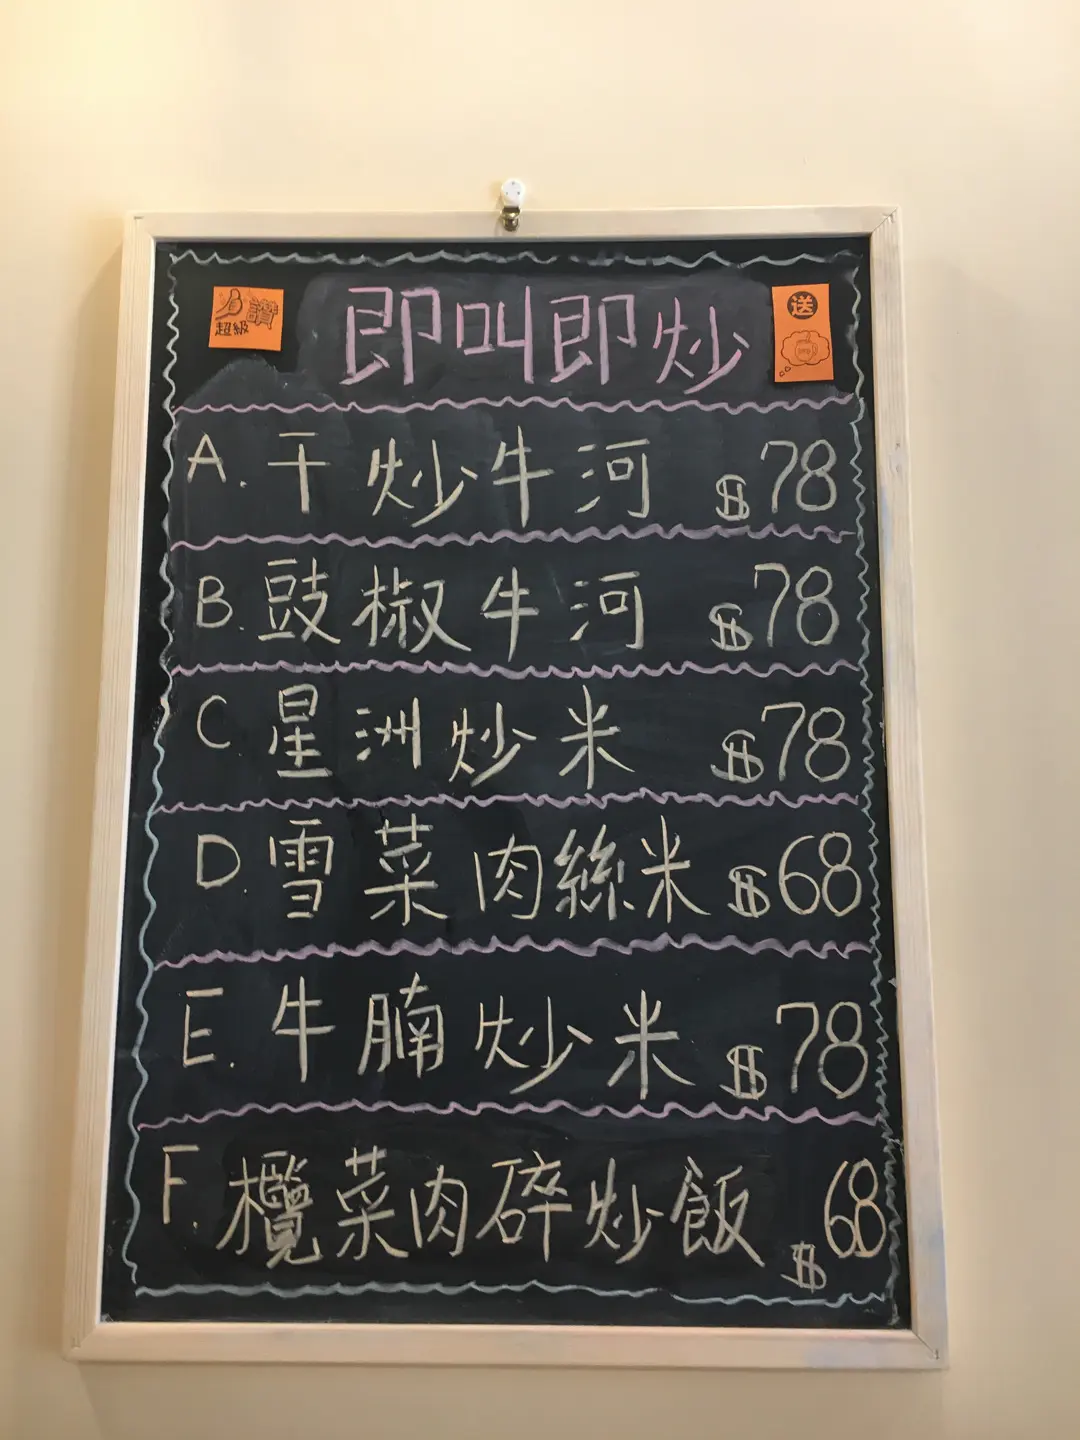 即叫即炒
讚
超級
送
A. 干炒牛河 $78
B. 豉椒牛河 $78
C 星洲炒米 $78
D. 雪菜肉絲米 $68
E. 牛腩炒米 $78
F. 欖菜肉碎炒飯 $68